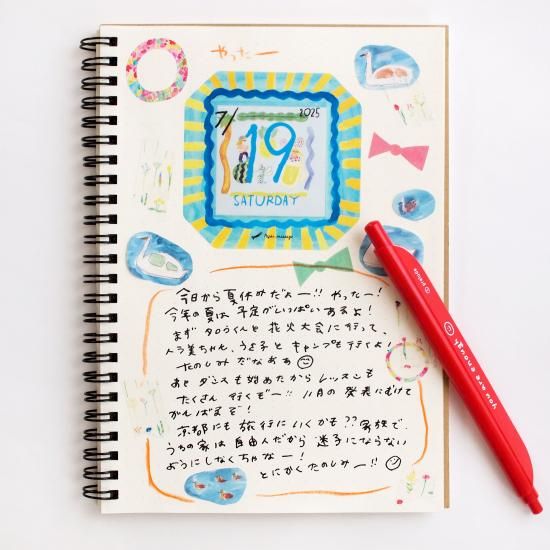 やったー
7/
2025
19
SATURDAY
Paper message
今日から夏休みだよー!! やったー!
今年の夏は 予定がいっぱいあるよ!
まず タロウくんと 花火大会に行って、
んちゃんと、うさ子と キャンプも行くよ!
たのしみ だなぁぁ
あと ダンスも始めたから レッスンも
たくさん 行くぞー!! 11月の 発表にむけて
がんばるぞ!
京都にも 旅行に いくかも?? 家族で、
うちの家は 自由人だから 迷子にならない
ようにしなくちゃなー!
とにかくたのしみー!!
you are beauty